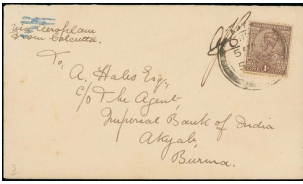 via Aeroplane
from Calcutta.
To,
A. Hales Esq.,
c/o The Agent,
Imperial Bank of India
Akyab,
Burma.